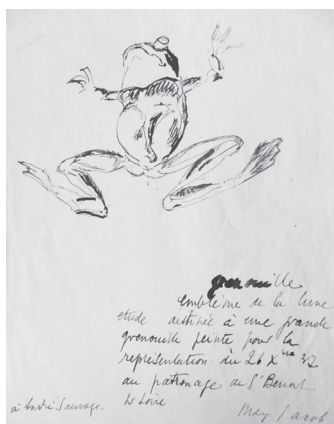 grenouille
emblème de la lune
etude destinée à une grande
grenouille peinte pour la
représentation du 26 Xbre 37
au patronage de St Benoit
s/ Loire
à André Sauvage.
Max Jacob